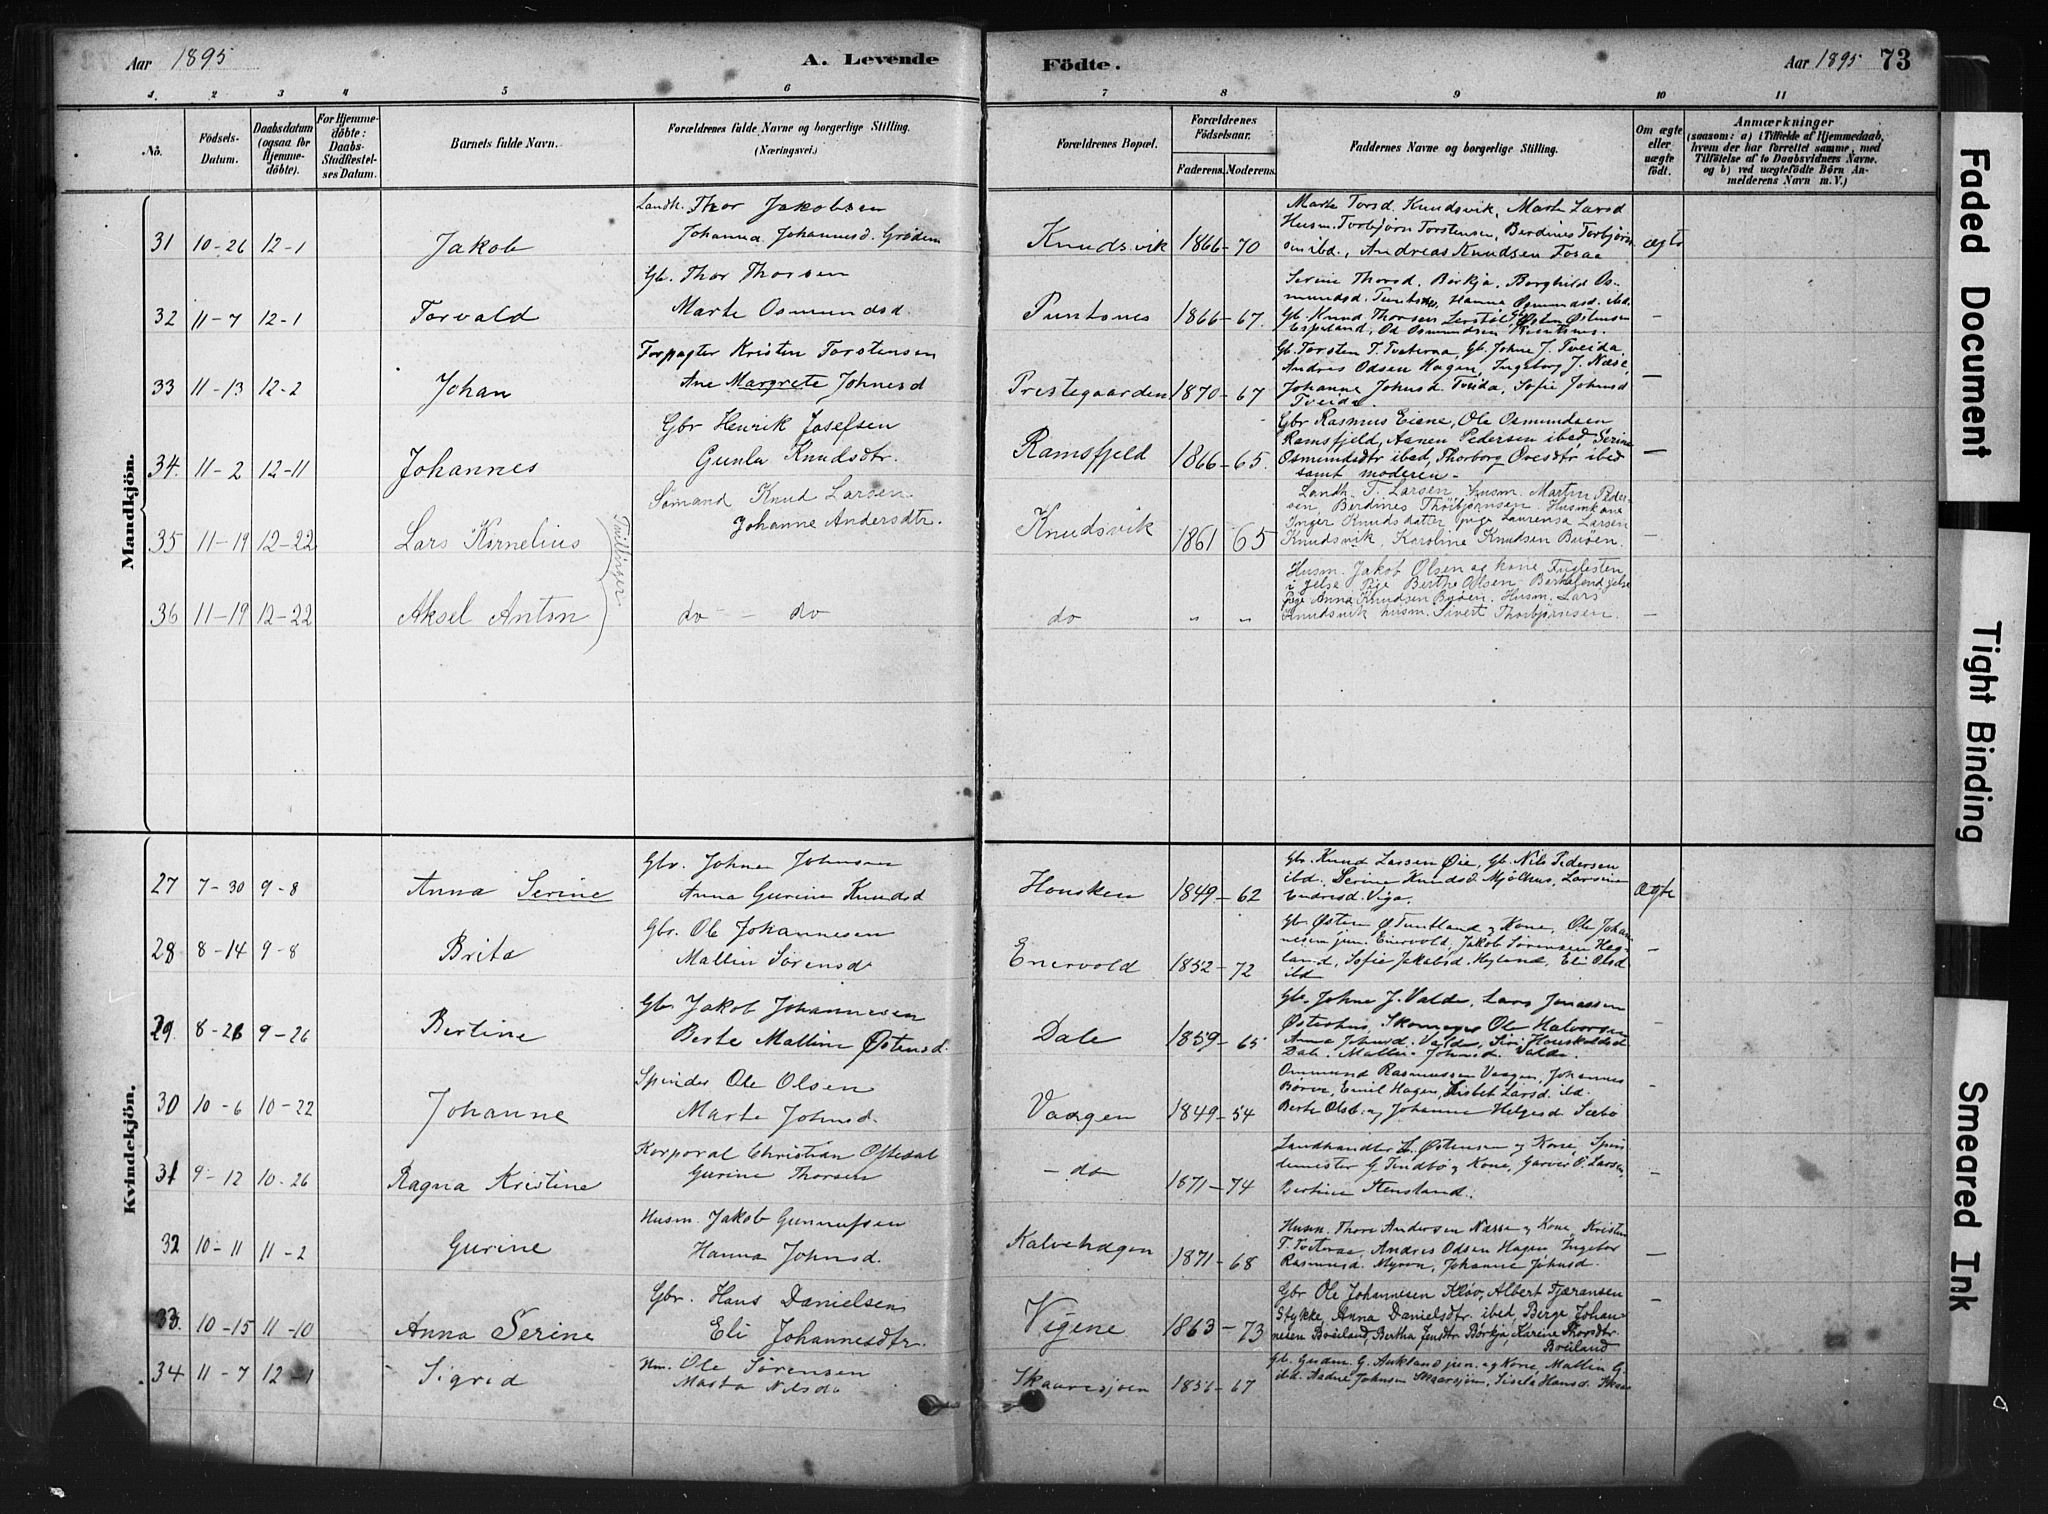 Aar 1895
A. Levende
Födte.
Aar 1895
73
1. 2 3 4 5 6 7 8 9 10 11
No.
Födsels-Datum.
Daabsdatum (ogsaa for Hjemme-döbte).
For Hjemme-döbte: Daabs-Stadfæstel-ses Datum.
Barnets fulde Navn.
Forældrenes fulde Navne og borgerlige Stilling. (Næringsvei.)
Forældrenes Bopæl.
Forældrenes Födselsaar.
Faderens. Moderens.
Faddernes Navne og borgerlige Stilling.
Om ægte eller uægte födt.
Anmærkninger
(saasom: a) i Tilfælde af Hjemmedaab,
hvem der har forrettet samme, med
Tilföielse af to Daabsvidners Navne.
og b) ved uægtefödte Börn An-
melderens Navn m. V.)
Mandkjön.
31 10-26 12-1 Jakob
Landh. Thor Jakobsen
Johanna Johannesd. Grödem
Knudsvik 1866-70
Marte Torsd. Knudsvik, Marte Larsd
Husm. Torbjörn Torstensen, Berdines Torbjörn-
sen ibd., Andreas Knudsen Foraa
ægte
32 11-7 12-1 Torvald
Gb. Thor Thorsen
Marte Osmundsd.
Puntsnes 1866-67.
Serine Thorsd. Börkja, Borghild Os-
mundsd. Puntsnes, Hanna Osmundsd. ibd.
Gb. Knud Thorsen Lerstöl, Gb. Östen Östensen
Espeland, Od Osmundsen Puntsnes.
—
33 11-13 12-2 Johan
Forpagter Kristen Torstensen
Ane Margrete Johnesd
Prestegaarden 1870-67
Gb. Torsten T. Tveteraa, Gb. Johne J. Tveida
Andres Odsen Hagen, Ingeborg J. Næse,
Johanne Johnsd. Tveida, Sofie Johnsd
Tveida.
—
34. 11-2 12-11 Johannes
Gbr Henrik Josefsen
Gunla Knudsdtr.
Ramsfjeld 1866-65.
Gbr Rasmus Eiene, Ole Osmundsen
Ramsfjeld, Aanen Pedersen ibed, Serine
Osmundsdtr ibed, Thorborg Oresdtr ibed
samt moderen.
—
35 11-19 12-22 Lars Kornelius
Tvillinger
Sömand Knud Larsen.
Johanne Andersdtr.
Knudsvik 1861 65
Landh. T. Larsen, husm. Martin Peder-
sen, Berdines Thorbjörnsen. Husmkone
Inger Knudsdatter, pige Laurensa Larsen
Knudsvik, Karoline Knudsen Buöen.
—
36 11-19 12-22 Aksel Anton
do — do
do " "
Husm. Jakob Olsen og kone Fuglesten
i Jelse Pige Berthe Olsen Barkeland Jelse
Pige Anna Knudsen Buöen. Husm. Lars
Knudsvik husm. Sivert Thorbjörnsen.
—
Kvindekjön.
27 7-30 9-8 Anna Serine
Gbr. Johne Johnsen
Anna Gurine Knudsd
Housken 1849-62
Gbr. Knud Larsen Öie, Gb. Nils Pedersen
ibd. Serine Knudsd. Mjölhus, Larsine
Endresd. Viga.
ægte
28 8-14 9-8 Brita
Gbr. Ole Johannesen
Mallin Sörensd
Enervold 1852-72
Gb. Östen Ö Tuntland og Kone, Ole Johan-
nesen jun. Enervold, Jakob Sörensen Heg-
land, Sofie Jakobsd. Hegland, Eli Olsd
ibd
—
29. 8-26 9-26 Bertine
Gbr Jakob Johannesen
Berte Malline Östensd.
Dale 1859-65
Gbr. Johne J. Valde, Lars Jonassen
Österhus, Skomager Ole Halvorsen
Anna Johnsd. Valde, Siri Houskoldsd
Dale. Mallin Johnsd. Valde.
—
30 10-6 10-22 Johanne
Spinder Ole Olsen
Marte Johnsd.
Vaagen 1849-54
Ommund Rasmussen Vaagen, Johannes
Boren, Emil Hagen, Lisbet Larsd. ibd.
Berte Olsd. og Johanne Helgesd Sæbö
—
31 9-12 10-26 Ragna Kristine
Korporal Christian Oftedal
Gurine Thorsen
— do 1871-74
Landhandler A. Östensen og Kone, Spin-
demester G. Tendbö og Kone, Garver O. Larsen,
Bertine Stensland.
—
32 10-11 11-2 Gurine
Husm. Jakob Gunnufsen
Hanna Johnsd.
Kalvehagen 1871-68
Husm. Thore Andersen Næsse og Kone, Kristen
T. Tveteraa, Andres Odsen Hagen, Ingebor
Rasmusd. Myren, Johanne Johnsd.
—
33. 10-15 11-10 Anna Serine
Gbr. Hans Danielsen
Eli Johannesdtr.
Vigene 1863-73
Gbr Ole Johannesen Klöv, Albert Tjæransen
Stykke, Anna Danielsdtr. ibed, Berge Johan-
nesen Breiland, Bertha Jensdtr Börkja, Karine Thorsdtr.
Breiland
—
34 11-7 12-1 Sigrid
Hm. Ole Sörensen
Marta Nilsd.
Skaaresjoen 1856-67
Gb. Gudm. G. Aukland jun. og Kone, Mallin G.
ibd. Aadne Johnsen Skaarsjöen, Sisela Hansd. Skaar
Faded Document
Tight Binding
Smeared Ink